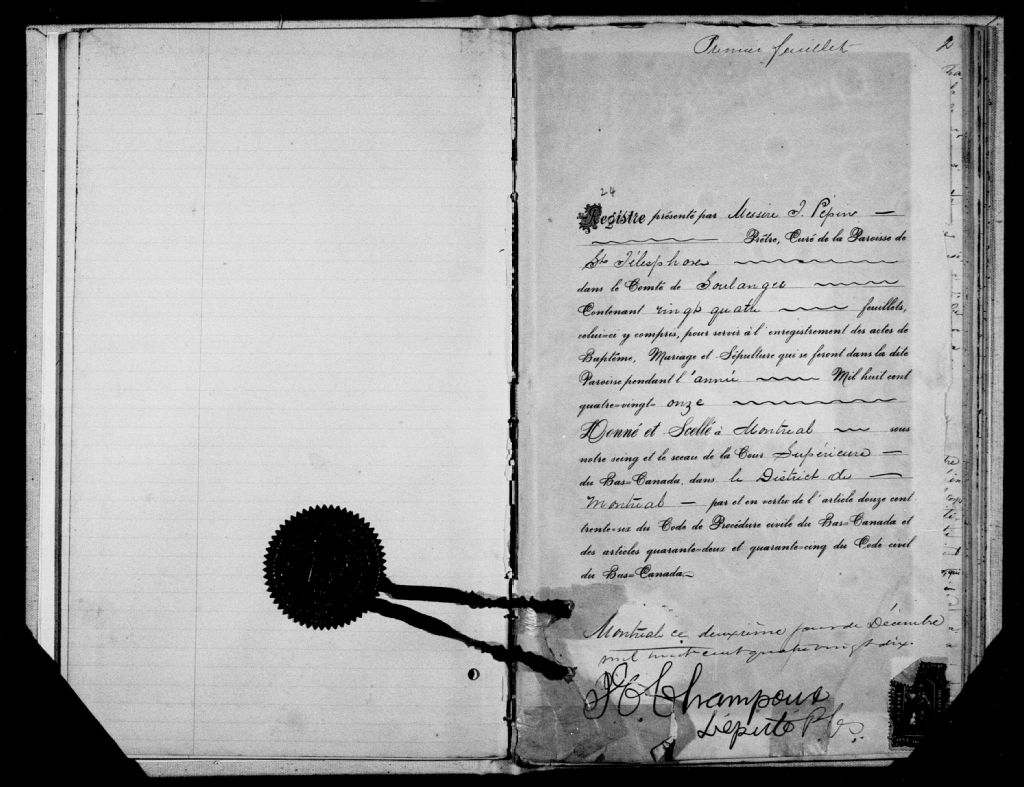 Premier feuillet
2
24
Registre présenté par Messire J. Pépin
Prêtre, Curé de la Paroisse de
St Télesphore
dans le Comté de Soulanges
Contenant vingt quatre feuillets,
celui-ci y compris, pour servir à l'enregistrement des actes de
Baptême, Mariage et Sépulture qui se feront dans la dite
Paroisse pendant l'année Mil huit cent
quatre-vingt- onze
Donné et Scellé à Montreal sous
notre seing et le sceau de la Cour Supérieure
du Bas-Canada, dans le District de
Montreal par et en vertu de l'article douze cent
trente-six du Code de Procédure civile du Bas-Canada et
des articles quarante-deux et quarante-cinq du Code civil
du Bas-Canada.
Montreal ce deuxième jour de Décembre
mil huit cent quatre vingt dix.
Champoux
Député P.